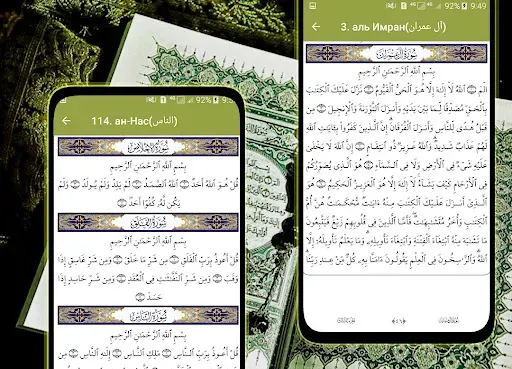 92% 9:5
114. ан-Нас(الناس)
سُورَةُ الإِخْلَاصِ
بِسْمِ ٱللَّهِ ٱلرَّحْمَٰنِ ٱلرَّحِيمِ
قُلْ هُوَ ٱللَّهُ أَحَدٌ ۝ ٱللَّهُ ٱلصَّمَدُ ۝ لَمْ يَلِدْ وَلَمْ يُولَدْ ۝ وَلَمْ
يَكُن لَّهُۥ كُفُوًا أَحَدٌۢ ۝
سُورَةُ الفَلَقِ
بِسْمِ ٱللَّهِ ٱلرَّحْمَٰنِ ٱلرَّحِيمِ
قُلْ أَعُوذُ بِرَبِّ ٱلْفَلَقِ ۝ مِن شَرِّ مَا خَلَقَ ۝ وَمِن شَرِّ غَاسِقٍ إِذَا
وَقَبَ ۝ وَمِن شَرِّ ٱلنَّفَّٰثَٰتِ فِى ٱلْعُقَدِ ۝ وَمِن شَرِّ حَاسِدٍ إِذَا
حَسَدَ ۝
سُورَةُ النَّاسِ
بِسْمِ ٱللَّهِ ٱلرَّحْمَٰنِ ٱلرَّحِيمِ
قُلْ أَعُوذُ بِرَبِّ ٱلنَّاسِ ۝ مَلِكِ ٱلنَّاسِ ۝ إِلَٰهِ ٱلنَّاسِ ۝ مِن
4G 92% 9:49
3. аль Имран(آل عمران)
سُورَةُ آلِ عِمْرَانَ
بِسْمِ ٱللَّهِ ٱلرَّحْمَٰنِ ٱلرَّحِيمِ
الٓمٓ ۝ ٱللَّهُ لَآ إِلَٰهَ إِلَّا هُوَ ٱلْحَىُّ ٱلْقَيُّومُ ۝ نَزَّلَ عَلَيْكَ ٱلْكِتَٰبَ
بِٱلْحَقِّ مُصَدِّقًا لِّمَا بَيْنَ يَدَيْهِ وَأَنزَلَ ٱلتَّوْرَىٰةَ وَٱلْإِنجِيلَ ۝ مِن
قَبْلُ هُدًى لِّلنَّاسِ وَأَنزَلَ ٱلْفُرْقَانَ ۗ إِنَّ ٱلَّذِينَ كَفَرُوا۟ بِـَٔايَٰتِ ٱللَّهِ
لَهُمْ عَذَابٌ شَدِيدٌ ۗ وَٱللَّهُ عَزِيزٌ ذُو ٱنتِقَامٍ ۝ إِنَّ ٱللَّهَ لَا يَخْفَىٰ
عَلَيْهِ شَىْءٌ فِى ٱلْأَرْضِ وَلَا فِى ٱلسَّمَآءِ ۝ هُوَ ٱلَّذِى يُصَوِّرُكُمْ
فِى ٱلْأَرْحَامِ كَيْفَ يَشَآءُ ۚ لَآ إِلَٰهَ إِلَّا هُوَ ٱلْعَزِيزُ ٱلْحَكِيمُ ۝ هُوَ
ٱلَّذِىٓ أَنزَلَ عَلَيْكَ ٱلْكِتَٰبَ مِنْهُ ءَايَٰتٌ مُّحْكَمَٰتٌ هُنَّ أُمُّ
ٱلْكِتَٰبِ وَأُخَرُ مُتَشَٰبِهَٰتٌ ۖ فَأَمَّا ٱلَّذِينَ فِى قُلُوبِهِمْ زَيْغٌ فَيَتَّبِعُونَ
مَا تَشَٰبَهَ مِنْهُ ٱبْتِغَآءَ ٱلْفِتْنَةِ وَٱبْتِغَآءَ تَأْوِيلِهِۦ ۗ وَمَا يَعْلَمُ تَأْوِيلَهُۥٓ إِلَّا
ٱللَّهُ ۗ وَٱلرَّٰسِخُونَ فِى ٱلْعِلْمِ يَقُولُونَ ءَامَنَّا بِهِۦ كُلٌّ مِّنْ عِندِ رَبِّنَا ۗ